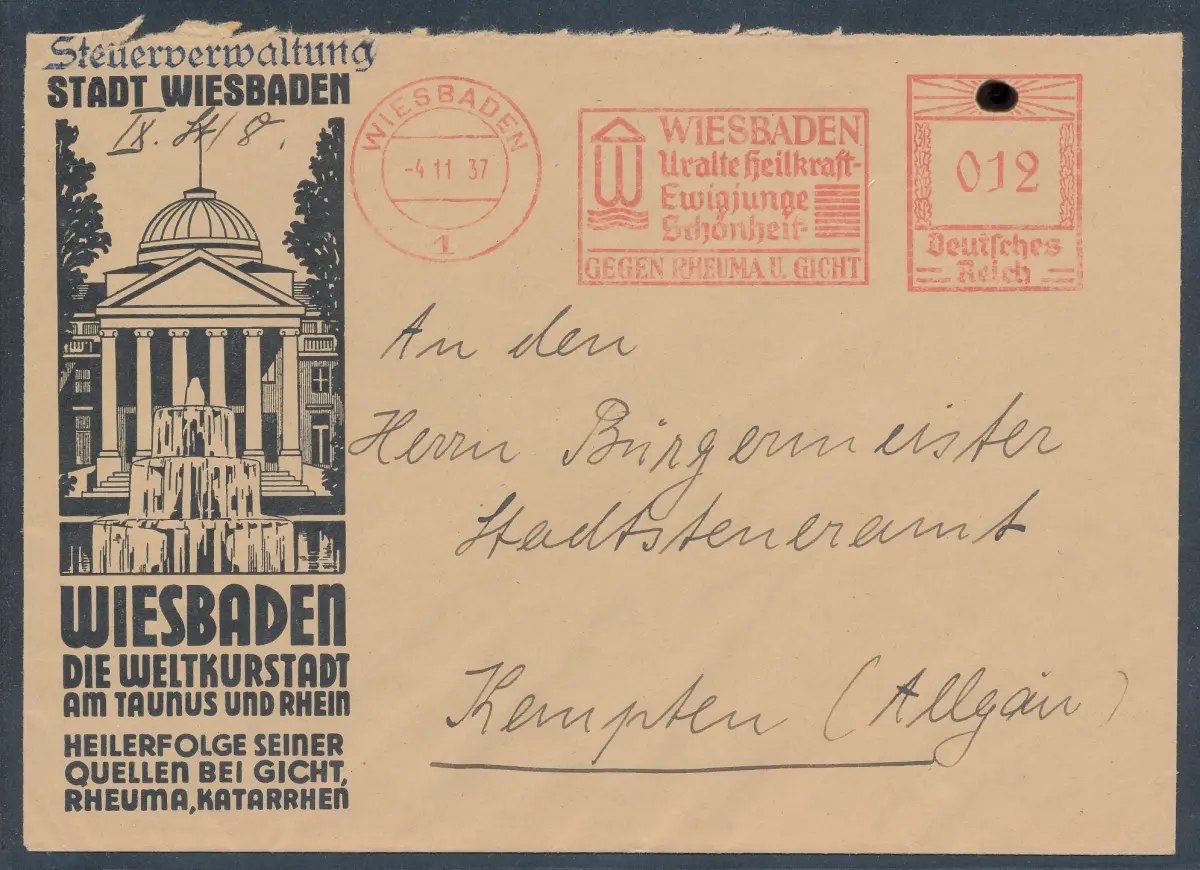 Steuerverwaltung
STADT WIESBADEN
IX. St/8.
WIESBADEN
-4.11 37
1
WIESBADEN
Uralte Heilkraft-
Ewigjunge
Schönheit-
GEGEN RHEUMA U. GICHT
012
Deutsches
Reich
An den
Herrn Bürgermeister
Stadtsteueramt
Kempten (Allgäu)
WIESBADEN
DIE WELTKURSTADT
AM TAUNUS UND RHEIN
HEILERFOLGE SEINER
QUELLEN BEI GICHT,
RHEUMA, KATARRHEN